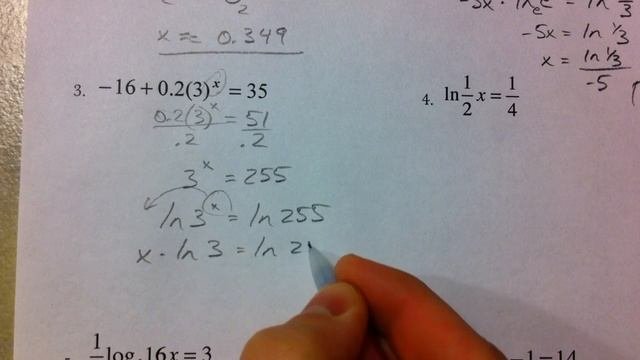 x ≈ 0.349
-5x = ln 1/3
x = ln 1/3
-5
3. −16 + 0.2(3)^x = 35
0.2(3)^x = 51
.2 .2
3^x = 255
ln 3^x = ln 255
x · ln 3 = ln 2
4. ln 1/2 x = 1/4
1
log 16x = 3
−1 = 14